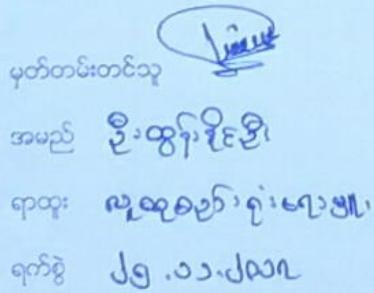 မှတ်တမ်းတင်သူ
အမည် ဦးထွန်းနိုင်ဦး
ရာထူး လူထုစည်းရုံးရေးမှူး
ရက်စွဲ ၂၅.၁၁.၂၀၁၇